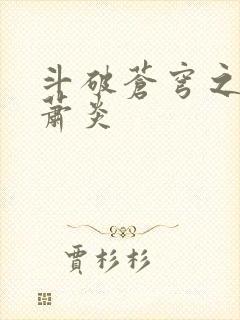 斗破苍穹之
萧炎
贾杉杉